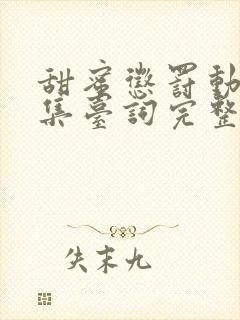 甜蜜懲罰動
集臺詞完整
失末九